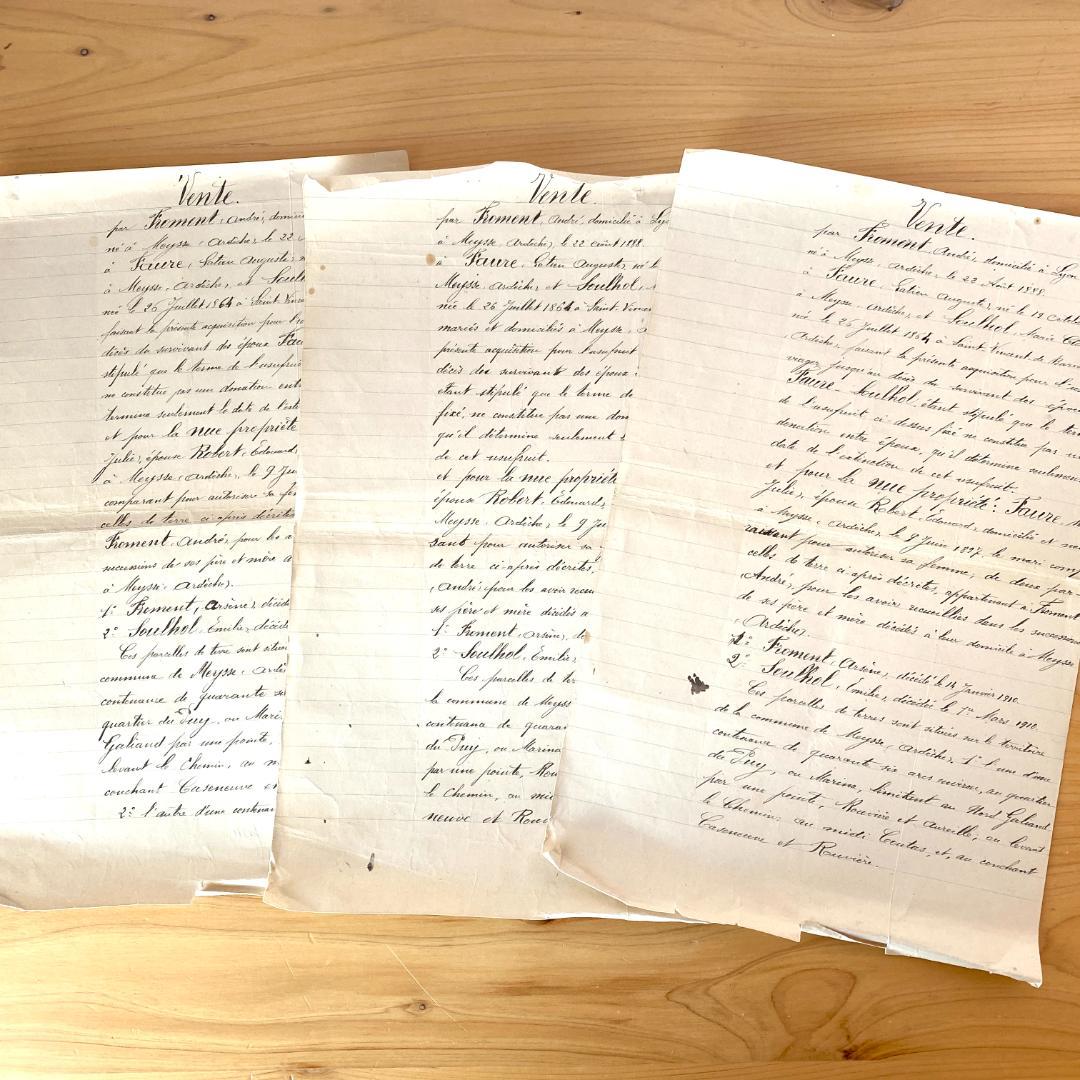 Vente.
par Froment, André, domici
né à Meysse, Ardèche, le 22
à Faure, Gatien Auguste, n
à Meysse, Ardèche, et Soulh
née le 26 Juillet 1864 à Saint Vince
faisant la présente acquisition pour l'
décès du survivant des époux Fau
stipulé que le terme de l'usufrui
ne constitue pas une donation ent
termine seulement la date de l'ext
et pour la nue propriété
Julie, épouse Robert, Edouard
à Meysse, Ardèche, le 9 Jui
comparant pour autoriser sa fem
celles de terre ci-après décrites
Froment, André, pour les a
successions de ses père et mère d
à Meysse, Ardèche.
1º Froment, Arsène, décéd
2º Soulhol, Emilie, décédé
Ces parcelles de terre sont situé
commune de Meysse, Ardè
contenance de quarante si
quartier du Puy, ou Mari
Galiand par une pointe,
levant le Chemin, au m
couchant Caseneuve et
2º l'autre d'une contenan
Vente.
par Froment, André, domicilié à Lyo
à Meysse, Ardèche, le 22 Août 1888.
à Faure, Gatien Auguste, né l
Meysse, Ardèche, et Soulhol,
née le 26 Juillet 1864 à Saint-Vince
mariés et domiciliés à Meysse, A
présente acquisition pour l'usufruit
décès des survivants des époux
étant stipulé que le terme de
fixé, ne constitue pas une don
qu'il détermine seulement l
de cet usufruit.
et pour la nue propriété
épouse Robert, Edouard,
Meysse, Ardèche, le 9 Jui
sant pour autoriser sa
de terre ci-après décrites,
André, pour les avoir recu
ses père et mère décédés à
1º Froment, Arsène, dé
2º Soulhol, Emilie,
Ces parcelles de ter
la commune de Meyss
contenance de quaran
du Puy, ou Marina
par une pointe, Rou
le Chemin, au mid
neuve et Rouvi
Vente.
par Froment André, domicilié à Lyon
né à Meysse, Ardèche, le 22 Août 1888.
à Faure, Gatien Auguste, né le 19 Octob
à Meysse, Ardèche, et Soulhol, Marie
née le 26 Juillet 1864 à Saint Vincent de
Ardèche, faisant la présente acquisition pour l'us
viager, jusqu'au décès du survivant des époux
Faure-Soulhol, étant stipulé que le ter
de l'usufruit ci-dessus fixé ne constitue pas u
donation entre époux, qu'il détermine seulemen
date de l'extinction de cet usufruit.
et pour la nue propriété: Faure,
Julie, épouse Robert, Edouard, domicilié et
à Meysse, Ardèche, le 9 Juin 1897, le mari comp
raissant pour autoriser sa femme, de deux par
celles de terre ci-après décrites, appartenant à Froment
André, pour les avoir recueillies dans les succession
de ses père et mère décédés à leur domicile à Meysse
Ardèche.
1º Froment, Arsène, décédé le 14 Janvier 1910.
2º Soulhol, Emilie, décédée le 1er Mars 1910.
Ces parcelles de terres sont situées sur le territoire
de la commune de Meysse, Ardèche, 1º l'une d'une
contenance de quarante six ares environ, au quartier
du Puy, ou Marina, limitant au Nord Galiand
par une pointe, Rouvière et Aureille, au levant
le Chemin, au midi Coutas, et, au couchant
Caseneuve et Rouvière.